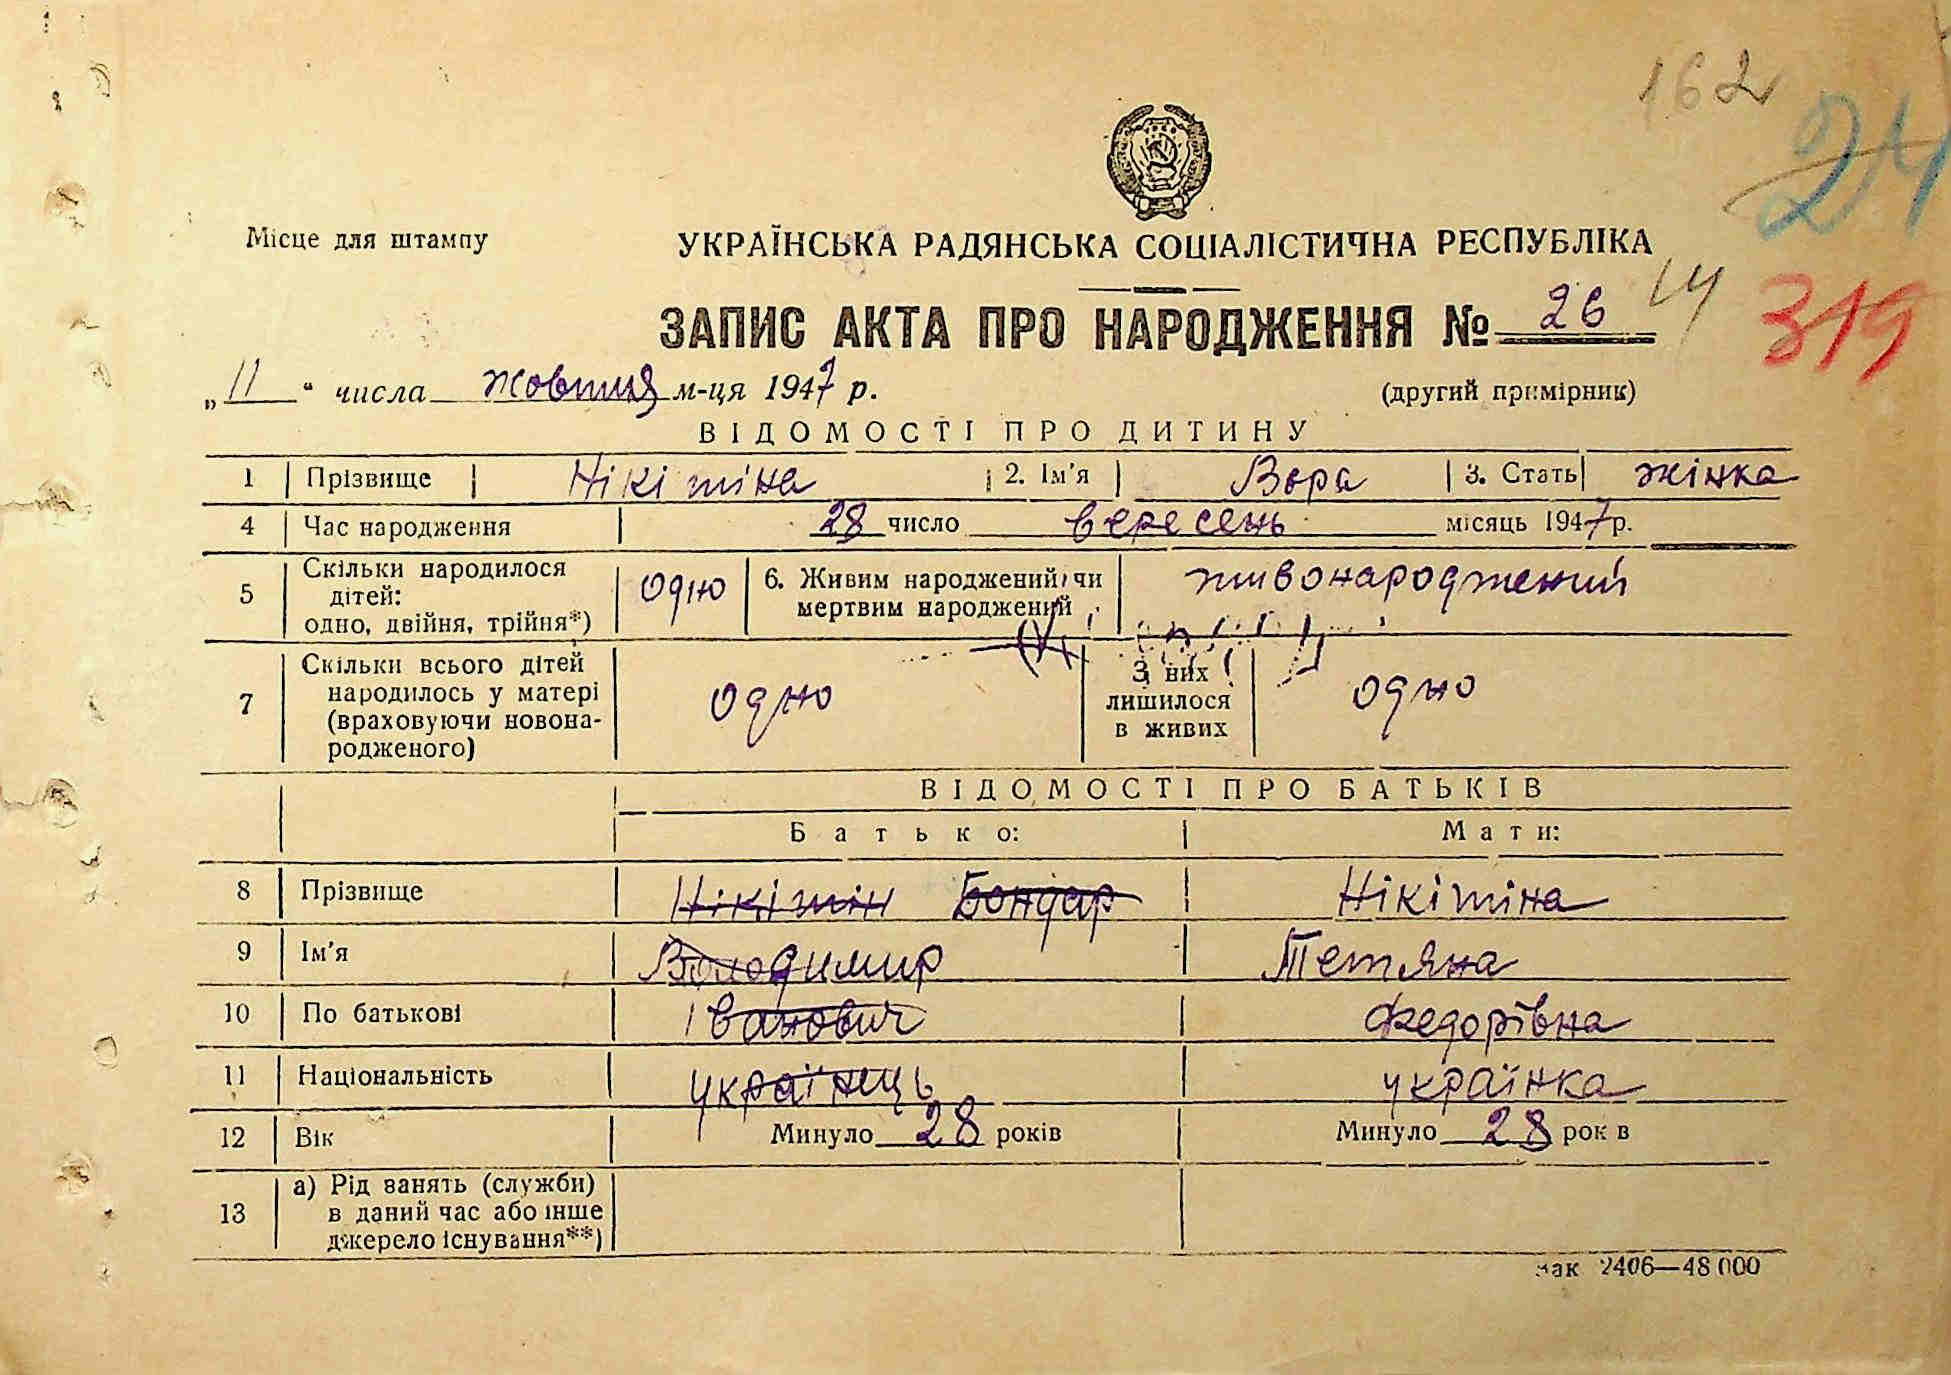 162
24
Місце для штампу
УКРАЇНСЬКА РАДЯНСЬКА СОЦІАЛІСТИЧНА РЕСПУБЛІКА
ЗАПИС АКТА ПРО НАРОДЖЕННЯ № 26
14
319
„ 11 “ числа жовтня м-ця 1947 р. (другий примірник)
ВІДОМОСТІ ПРО ДИТИНУ
1 Прізвище Нікітіна 2. Ім'я Вєра 3. Стать жінка
4 Час народження 28 число вересень місяць 1947 р.
5 Скільки народилося дітей: одно, двійня, трійня*) одно 6. Живим народжений чи мертвим народжений живонароджений
7 Скільки всього дітей народилось у матері (враховуючи новонародженого) одно З них лишилося в живих одно
ВІДОМОСТІ ПРО БАТЬКІВ
Батько: Мати:
8 Прізвище Нікітін Бондар Нікітіна
9 Ім'я Володимир Тетяна
10 По батькові Іванович Федорівна
11 Національність українець українка
12 Вік Минуло 28 років Минуло 28 рок в
13 а) Рід занять (служби) в даний час або інше джерело існування**)
зак 2406—48 000